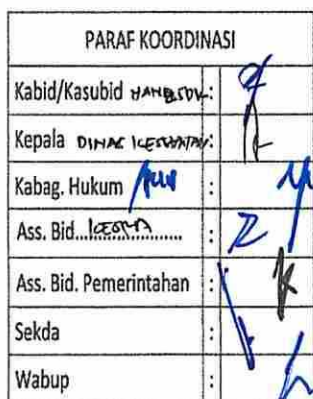 PARAF KOORDINASI
Kabid/Kasubid :
Kepala DINAS KESEHATAN :
Kabag. Hukum :
Ass. Bid.................... :
Ass. Bid. Pemerintahan :
Sekda :
Wabup :